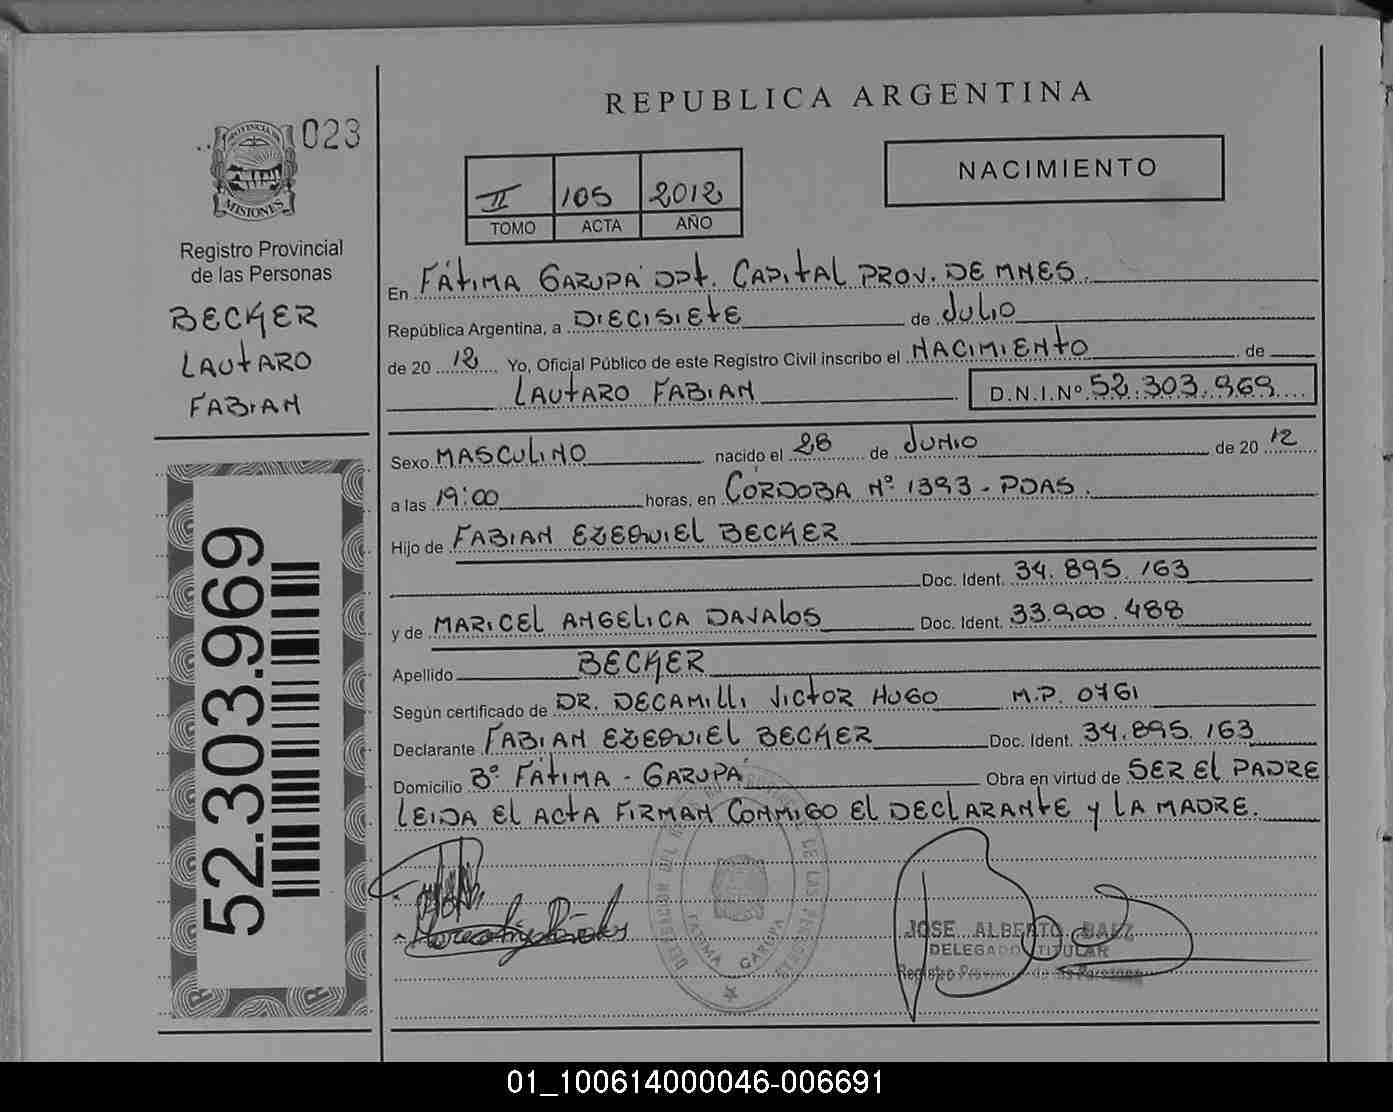 REPUBLICA ARGENTINA
023
PROVINCIA DE
MISIONES
Registro Provincial
de las Personas
BECKER
LAUTARO
FABIAN
52.303.969
NACIMIENTO
II 105 2012
TOMO ACTA AÑO
En FÁTIMA GARUPA DPT. CAPITAL PROV. DE MNES.
República Argentina, a DIECISIETE de JULIO
de 20 12 Yo, Oficial Público de este Registro Civil inscribo el NACIMIENTO de
LAUTARO FABIAN D.N.I.Nº 52.303.969
Sexo MASCULINO nacido el 26 de JUNIO de 20 12
a las 19:00 horas, en CÓRDOBA Nº 1393 - PDAS.
Hijo de FABIAN EZEQUIEL BECKER
Doc. Ident. 34.895.163
y de MARICEL ANGELICA DAVALOS Doc. Ident. 33.900.488
Apellido BECKER
Según certificado de DR. DECAMILLI VICTOR HUGO M.P. 0761
Declarante FABIAN EZEQUIEL BECKER Doc. Ident. 34.895.163
Domicilio Bº FÁTIMA - GARUPÁ Obra en virtud de SER EL PADRE
LEIDA EL ACTA FIRMAN CONMIGO EL DECLARANTE Y LA MADRE.
DELEGACION DEL DE LAS PERSONAS
FATIMA GARUPA
JOSE ALBERTO BAEZ
DELEGADO TITULAR
Registro Provincial de las Personas
01_100614000046-006691